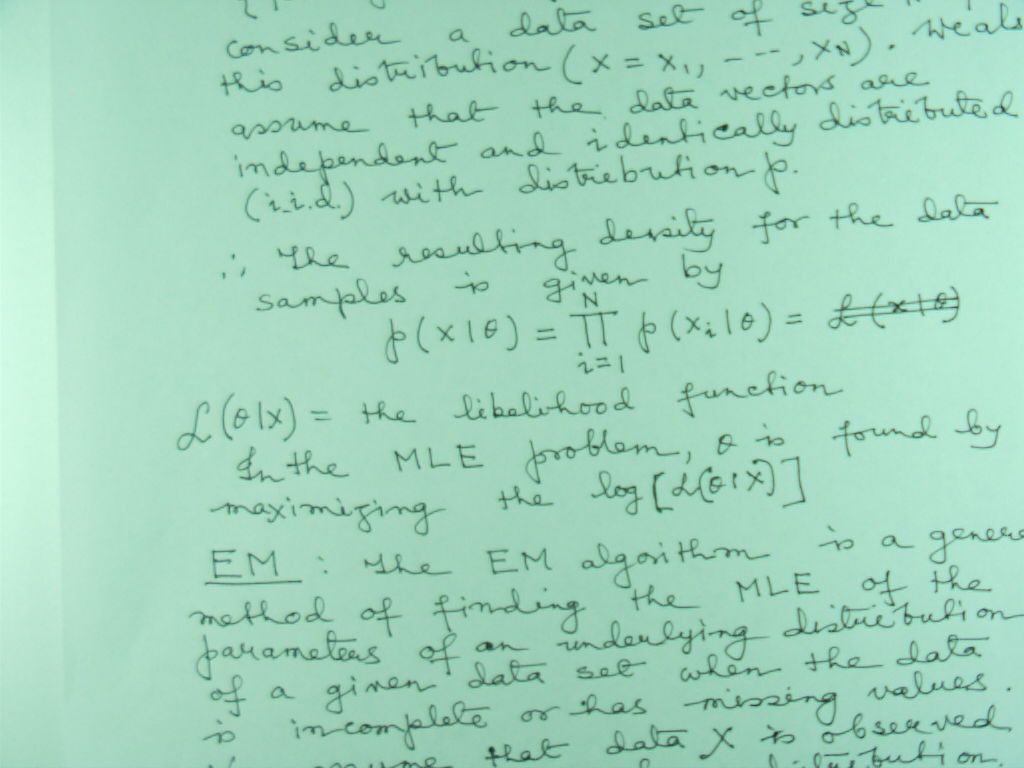 consider a data set of size
this distribution (X = x₁, - --, x_N). We als
assume that the data vectors are
independent and identically distributed
(i.i.d.) with distribution p.
∴ The resulting density for the data
samples is given by
N
p(x|θ) = ∏ p(x_i|θ) = ~~L(x|θ)~~
i=1
L(θ|X) = the likelihood function
In the MLE problem, θ is found by
maximizing the log[L(θ|X)]
EM : The EM algorithm is a genera
method of finding the MLE of the
parameters of an underlying distribution
of a given data set when the data
is incomplete or has missing values.
that data X is observed
distribution.